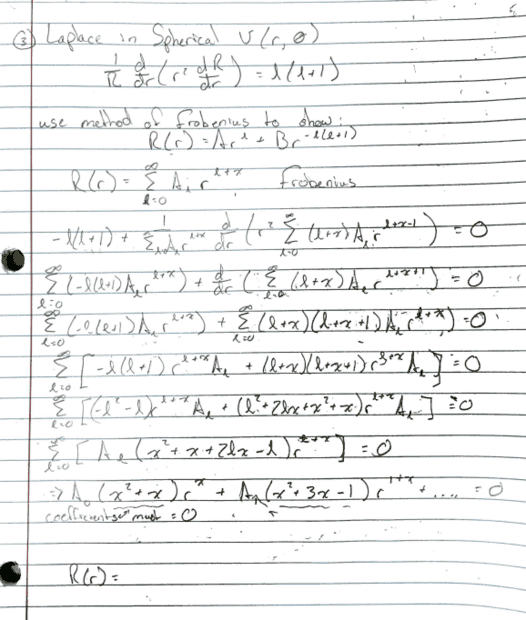 ③ Laplace in Spherical U(r, θ)
1/R d/dr (r² dR/dr) = l(l+1)
use method of frobenius to show:
R(r) = Ar^l + Br^-l(l+1)
R(r) = Σ_{l=0}^∞ A_l r^{l+x} frobenius
-l(l+1) + 1/(Σ_l A_l r^{l+x}) d/dr (r² Σ_{l=0}^∞ (l+x) A_l r^{l+x-1}) = 0
Σ_{l=0}^∞ (-l(l+1) A_l r^{l+x}) + d/dr (Σ_{l=0}^∞ (l+x) A_l r^{l+x+1}) = 0
Σ_{l=0}^∞ (-l(l+1) A_l r^{l+x}) + Σ_{l=0}^∞ (l+x)(l+x+1) A_l r^{l+x}) = 0
Σ_{l=0}^∞ [-l(l+1) r^{l+x} A_l + (l+x)(l+x+1) r^{l+x} A_l] = 0
Σ_{l=0}^∞ [(-l²-l) r^{l+x} A_l + (l²+2lx+x²+x) r^{l+x} A_l] = 0
Σ_{l=0}^∞ [A_l (x²+x+2lx-l) r^{l+x}] = 0
⇒ A_0 (x²+x) r^x + A_1 (x²+3x-1) r^{1+x} + .... = 0
coefficients must = 0
R(r) =